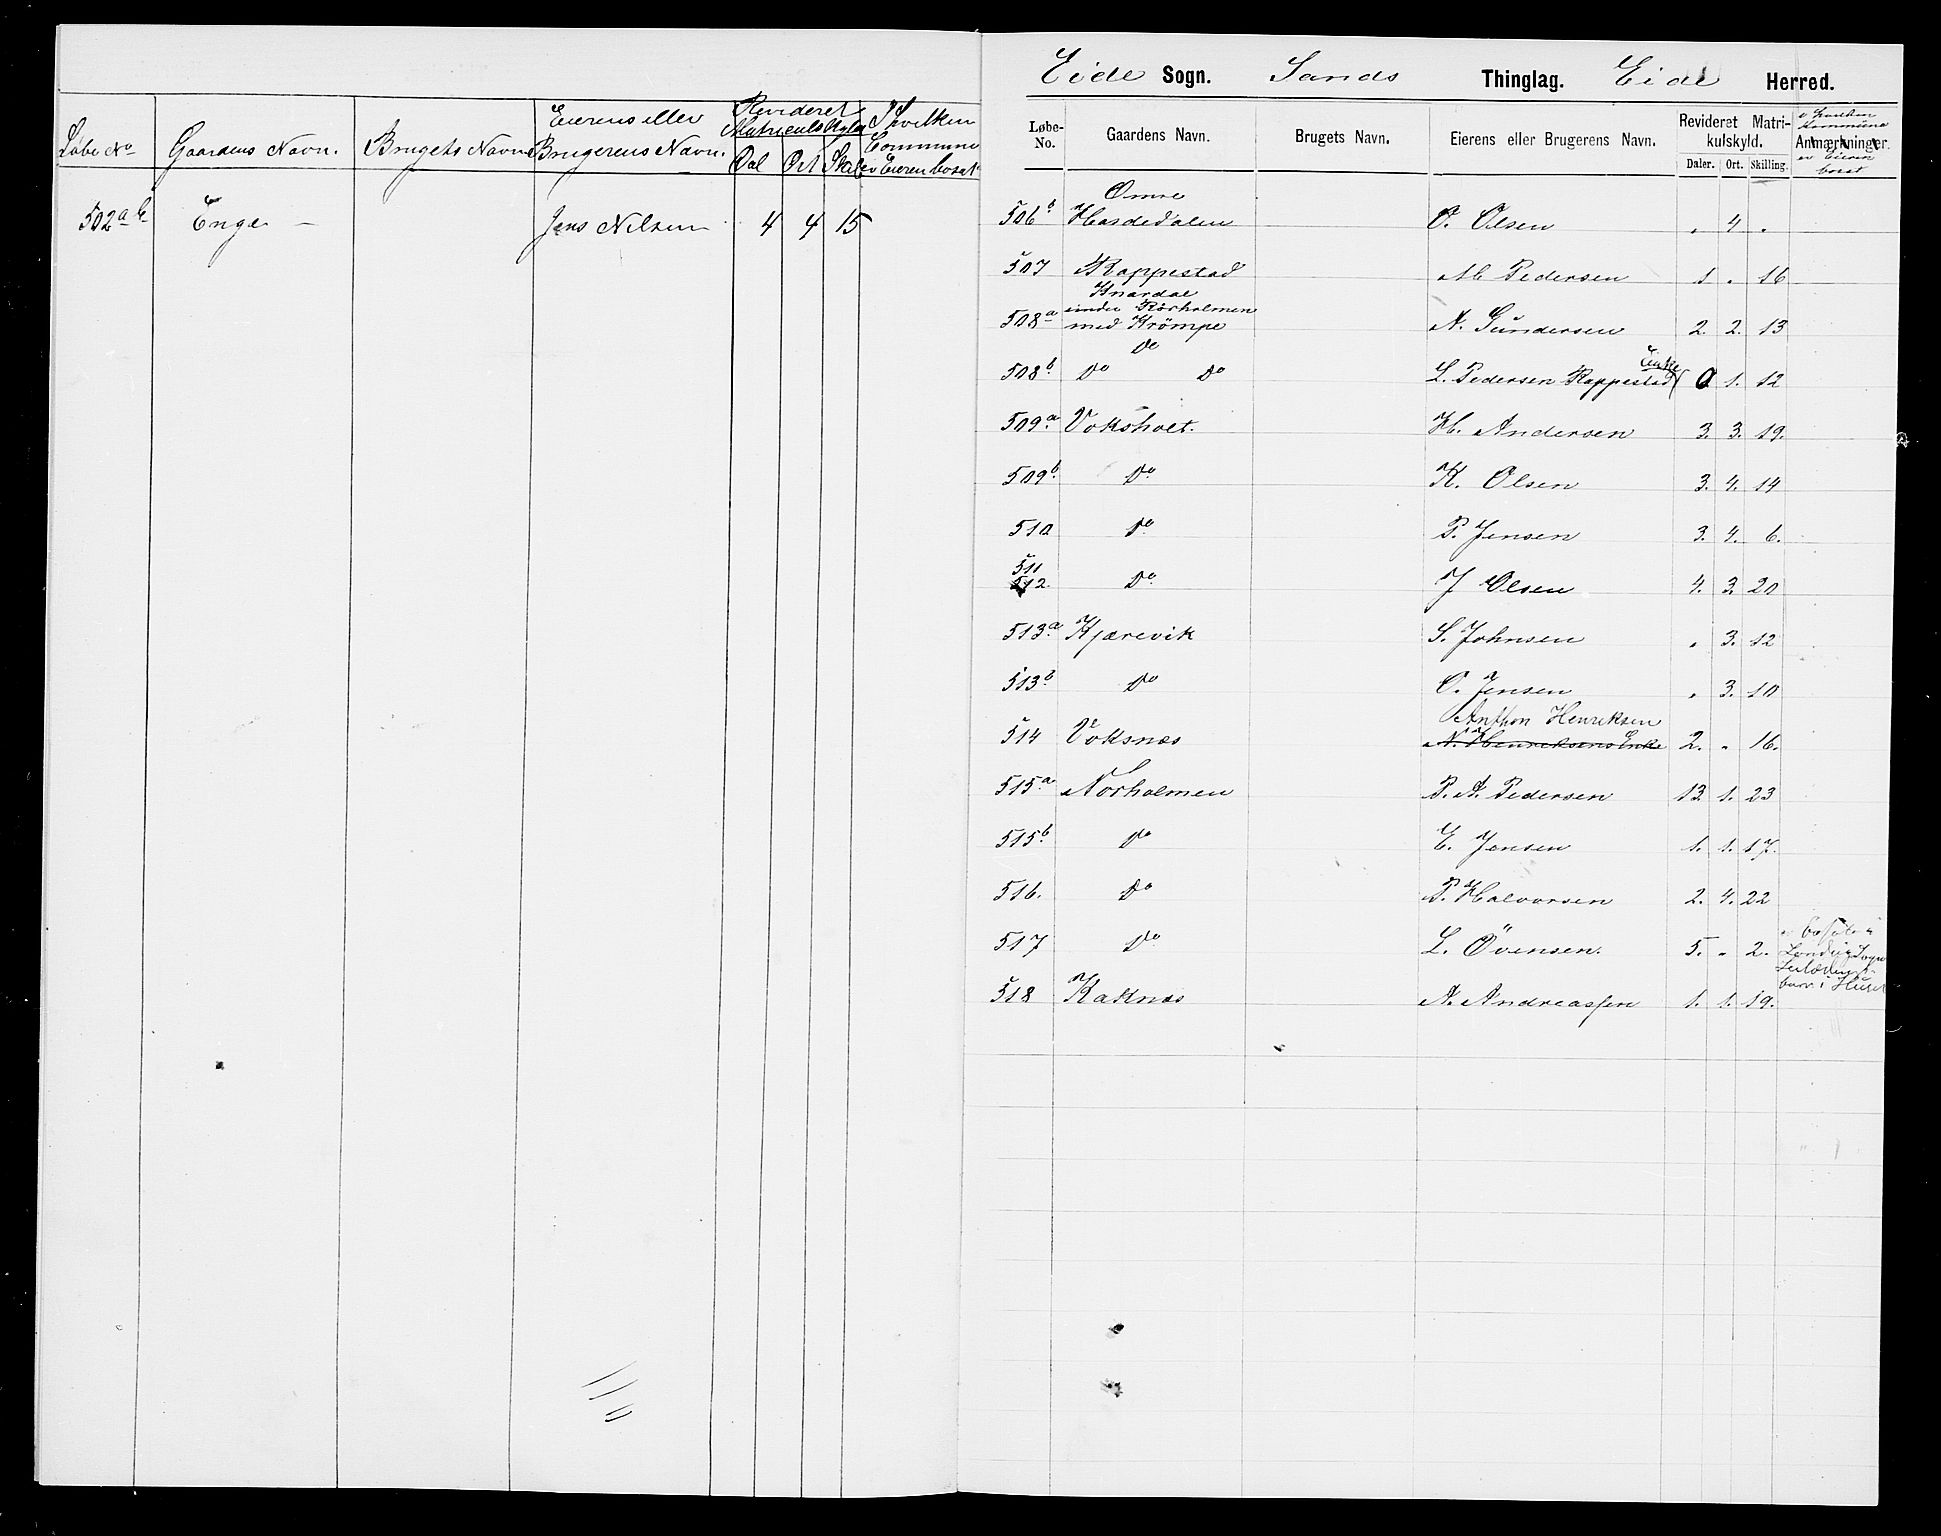 Eierens eller Revideret I hvilken
Løbe No Gaardens Navn. Brugets Navn Brugerens Navn. Matriculskyld Commune
Dal Ort Skil er Eieren bosat
502 a b Enge — Jens Nilsen 4 4 15
Eide Sogn. Sands Thinglag. Eide Herred.
Løbe-No. Gaardens Navn. Brugets Navn. Eierens eller Brugerens Navn. Revideret Matrikulskyld. Anmærkninger.
Daler. Ort. Skilling.
i hvilken Kommune er Eieren bosat
Omre
506 b Hasdedalen O. Olsen „ 4 „
507 Rappestad M Pedersen 1 „ 16
Knardal
under Rørholmen
508 a med Krömpe N. Gundersen 2. 2. 13
Do
508 b Do Do L. Pedersen Rappestad Enke 0 1. 12
509 a Voksholt. H. Andersen 3. 3. 19.
509 b Do K. Olsen 3. 4. 14
510 Do P. Jensen 3. 4. 6.
511
512. Do J Olsen 4. 3. 20
513 a Kjærevik S. Johnsen „ 3. 12
513 b Do O. Jensen „ 3. 10
Anthon Henriksen
514 Voksnæs N. Henriksens Enke 2. „ 16.
515 a Norholmen P. A. Pedersen 13 1. 23
515 b Do E. Jensen 1. 1. 17.
516. Do P. Halvorsen 2. 4. 22
517 Do L. Övensen. 5. „ 2.
518 Kaknæs A. Andreassen 1. 1. 19.